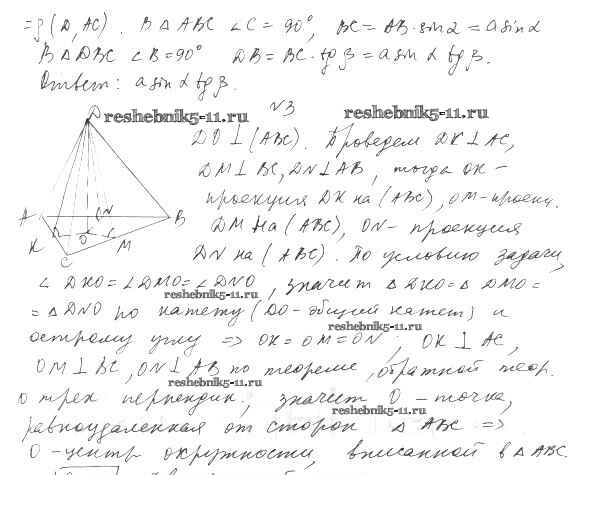 = ρ (D, AC). В △ ABC ∠C = 90°, BC = AB · sin α = a sin α
В △ DBC ∠B = 90° DB = BC · tg β = a sin α tg β.
Ответ: a sin α tg β.
N3
DO ⊥ (ABC). Проведем DK ⊥ AC,
DM ⊥ BC, DN ⊥ AB, тогда OK -
проекция DK на (ABC), OM - проекц.
DM на (ABC), ON - проекция
DN на (ABC). По условию задачи,
∠ DKO = ∠ DMO = ∠ DNO, значит △ DKO = △ DMO =
= △ DNO по катету (DO - общий катет) и
острому углу => OK = OM = ON; OK ⊥ AC,
OM ⊥ BC, ON ⊥ AB по теореме, обратной теор.
о трех перпендик., значит O - точка,
равноудаленная от сторон △ ABC =>
O - центр окружности, вписанной в △ ABC.
D
A
N
B
K
O
M
C
reshebnik5-11.ru
reshebnik5-11.ru
reshebnik5-11.ru
reshebnik5-11.ru
reshebnik5-11.ru
reshebnik5-11.ru